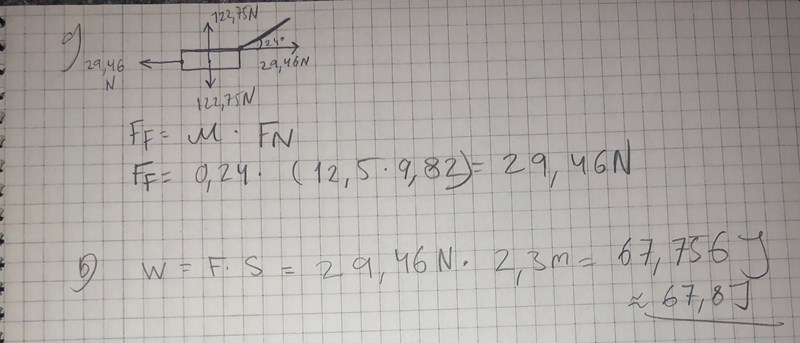 a)
122,75N
24°
29,46
N
29,46N
122,75N
FF = μ · FN
FF = 0,24 · (12,5 · 9,82) = 29,46N
b) W = F · S = 29,46N · 2,3m = 67,756J
≈ 67,8J